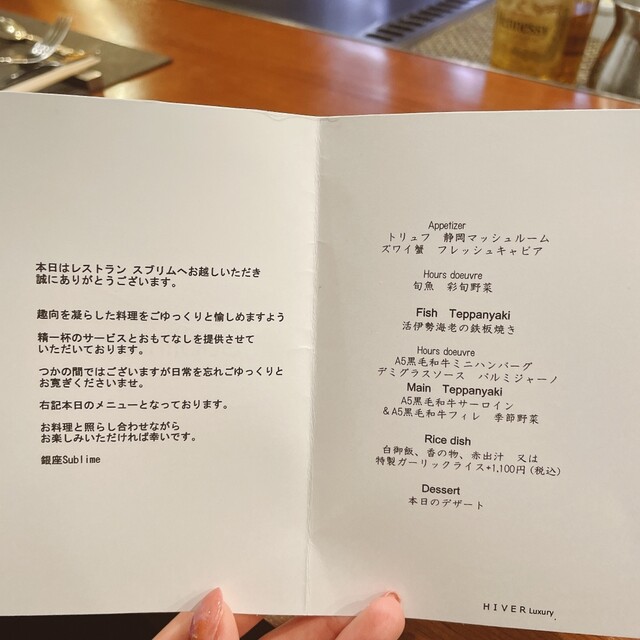 本日はレストラン スブリムへお越しいただき
誠にありがとうございます。
趣向を凝らした料理をごゆっくりと愉しめますよう
精一杯のサービスとおもてなしを提供させて
いただいております。
つかの間ではございますが日常を忘れごゆっくりと
お寛ぎくださいませ。
右記本日のメニューとなっております。
お料理と照らし合わせながら
お楽しみいただければ幸いです。
銀座Sublime
Appetizer
トリュフ 静岡マッシュルーム
ズワイ蟹 フレッシュキャビア
Hours doeuvre
旬魚 彩旬野菜
Fish Teppanyaki
活伊勢海老の鉄板焼き
Hours doeuvre
A5黒毛和牛ミニハンバーグ
デミグラスソース パルミジャーノ
Main Teppanyaki
A5黒毛和牛サーロイン
&A5黒毛和牛フィレ 季節野菜
Rice dish
白御飯、香の物、赤出汁 又は
特製ガーリックライス+1,100円(税込)
Dessert
本日のデザート
HIVER Luxury.
Hennessy